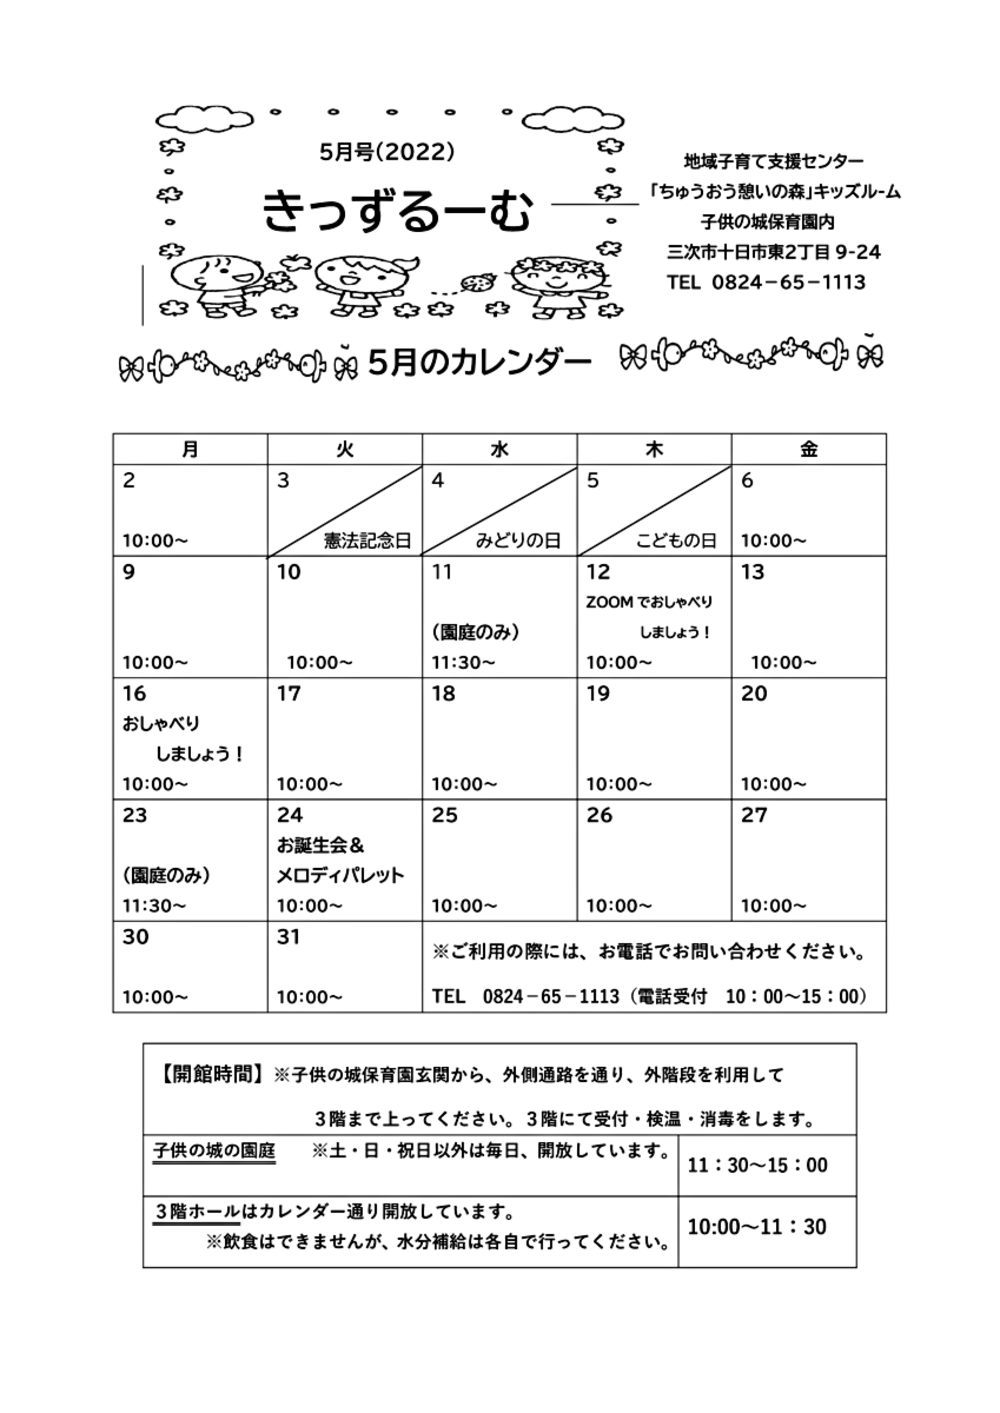 5月号(2022)
きっずるーむ
地域子育て支援センター
「ちゅうおう憩いの森」キッズルーム
子供の城保育園内
三次市十日市東2丁目9-24
TEL 0824－65－1113
5月のカレンダー
月 火 水 木 金
2 3 4 5 6
10:00～ 憲法記念日 みどりの日 こどもの日 10:00～
9 10 11 12 13
ZOOMでおしゃべり
（園庭のみ） しましょう！
10:00～ 10:00～ 11:30～ 10:00～ 10:00～
16 17 18 19 20
おしゃべり
しましょう！
10:00～ 10:00～ 10:00～ 10:00～ 10:00～
23 24 25 26 27
お誕生会＆
（園庭のみ） メロディパレット
11:30～ 10:00～ 10:00～ 10:00～ 10:00～
30 31
※ご利用の際には、お電話でお問い合わせください。
10:00～ 10:00～ TEL 0824－65－1113（電話受付 10：00～15：00）
【開館時間】※子供の城保育園玄関から、外側通路を通り、外階段を利用して
３階まで上ってください。３階にて受付・検温・消毒をします。
子供の城の園庭 ※土・日・祝日以外は毎日、開放しています。
11：30～15：00
３階ホールはカレンダー通り開放しています。
10:00～11：30
※飲食はできませんが、水分補給は各自で行ってください。